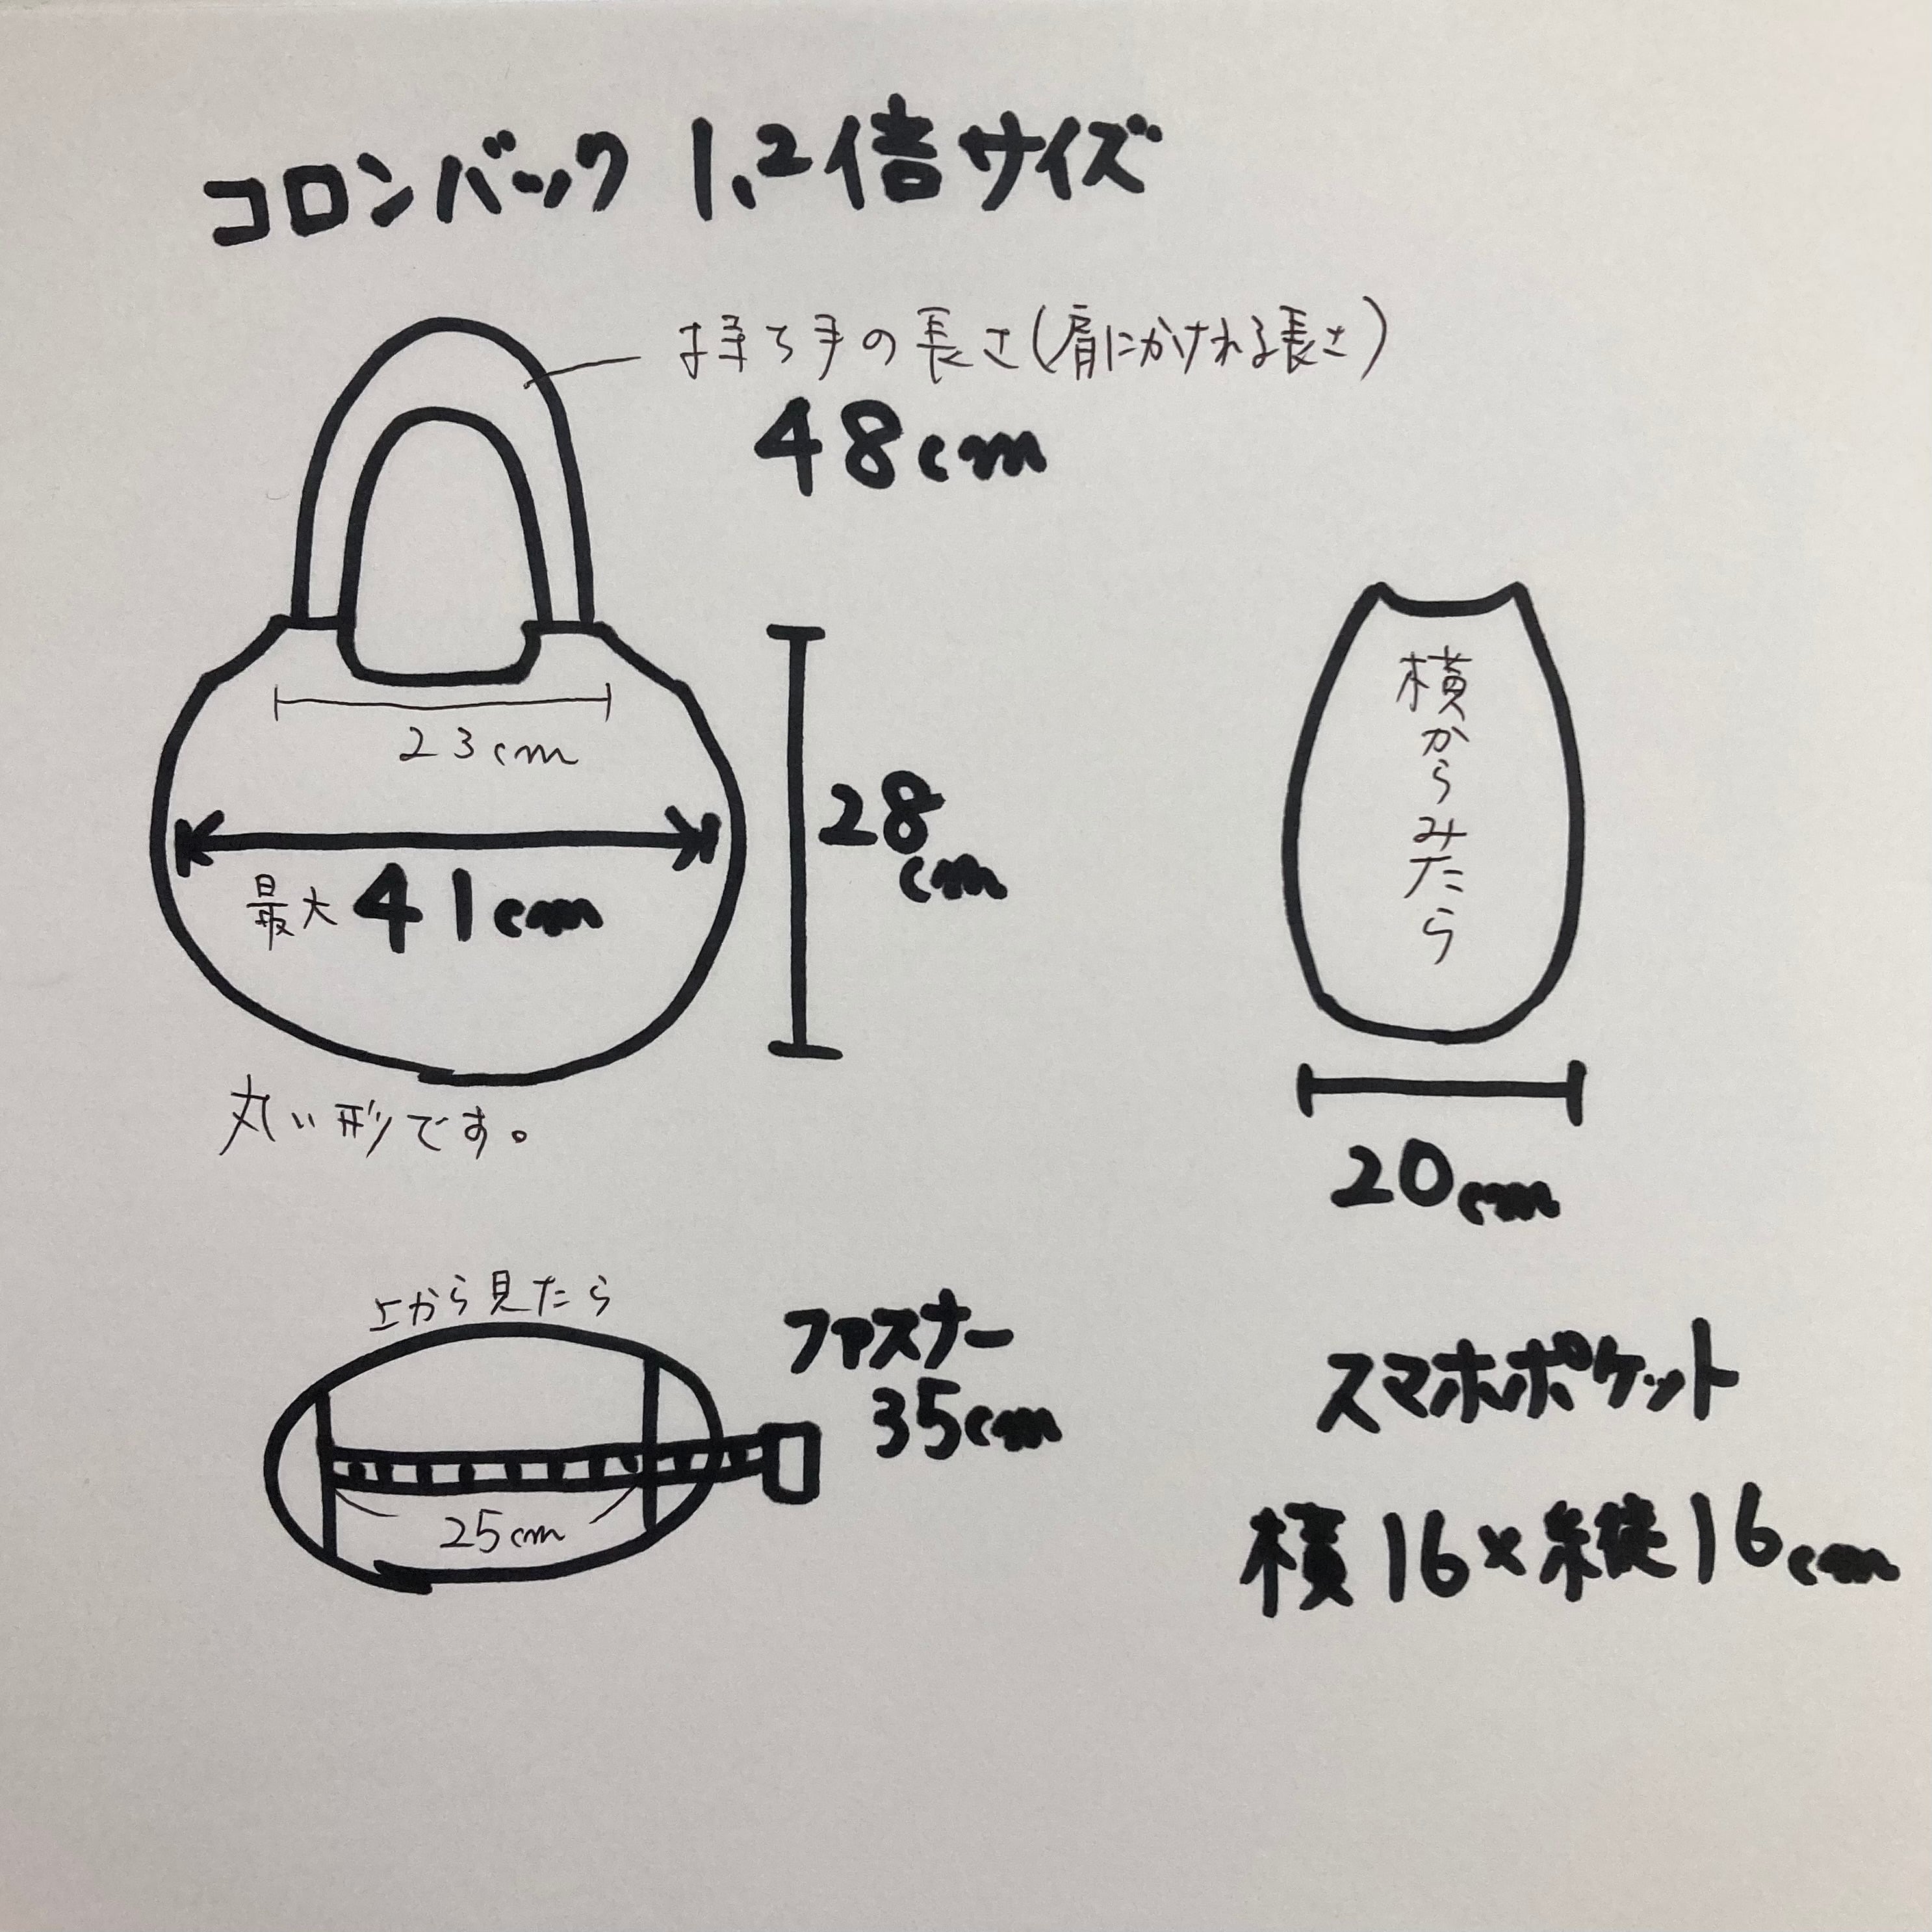 コロンバック 1,2倍サイズ
持ち手の長さ(肩にかけれる長さ)
48cm
23cm
最大41cm
28
cm
丸い形です。
横からみたら
20cm
上から見たら
ファスナー
35cm
25cm
スマホポケット
横16×縦16cm